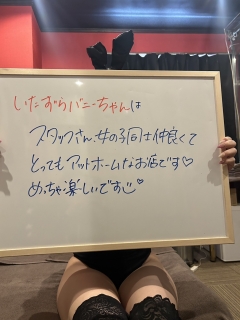 いたずらバニーちゃんは
スタッフさん、女の子同士仲良くて
とってもアットホームなお店です♡
めっちゃ楽しいです♡